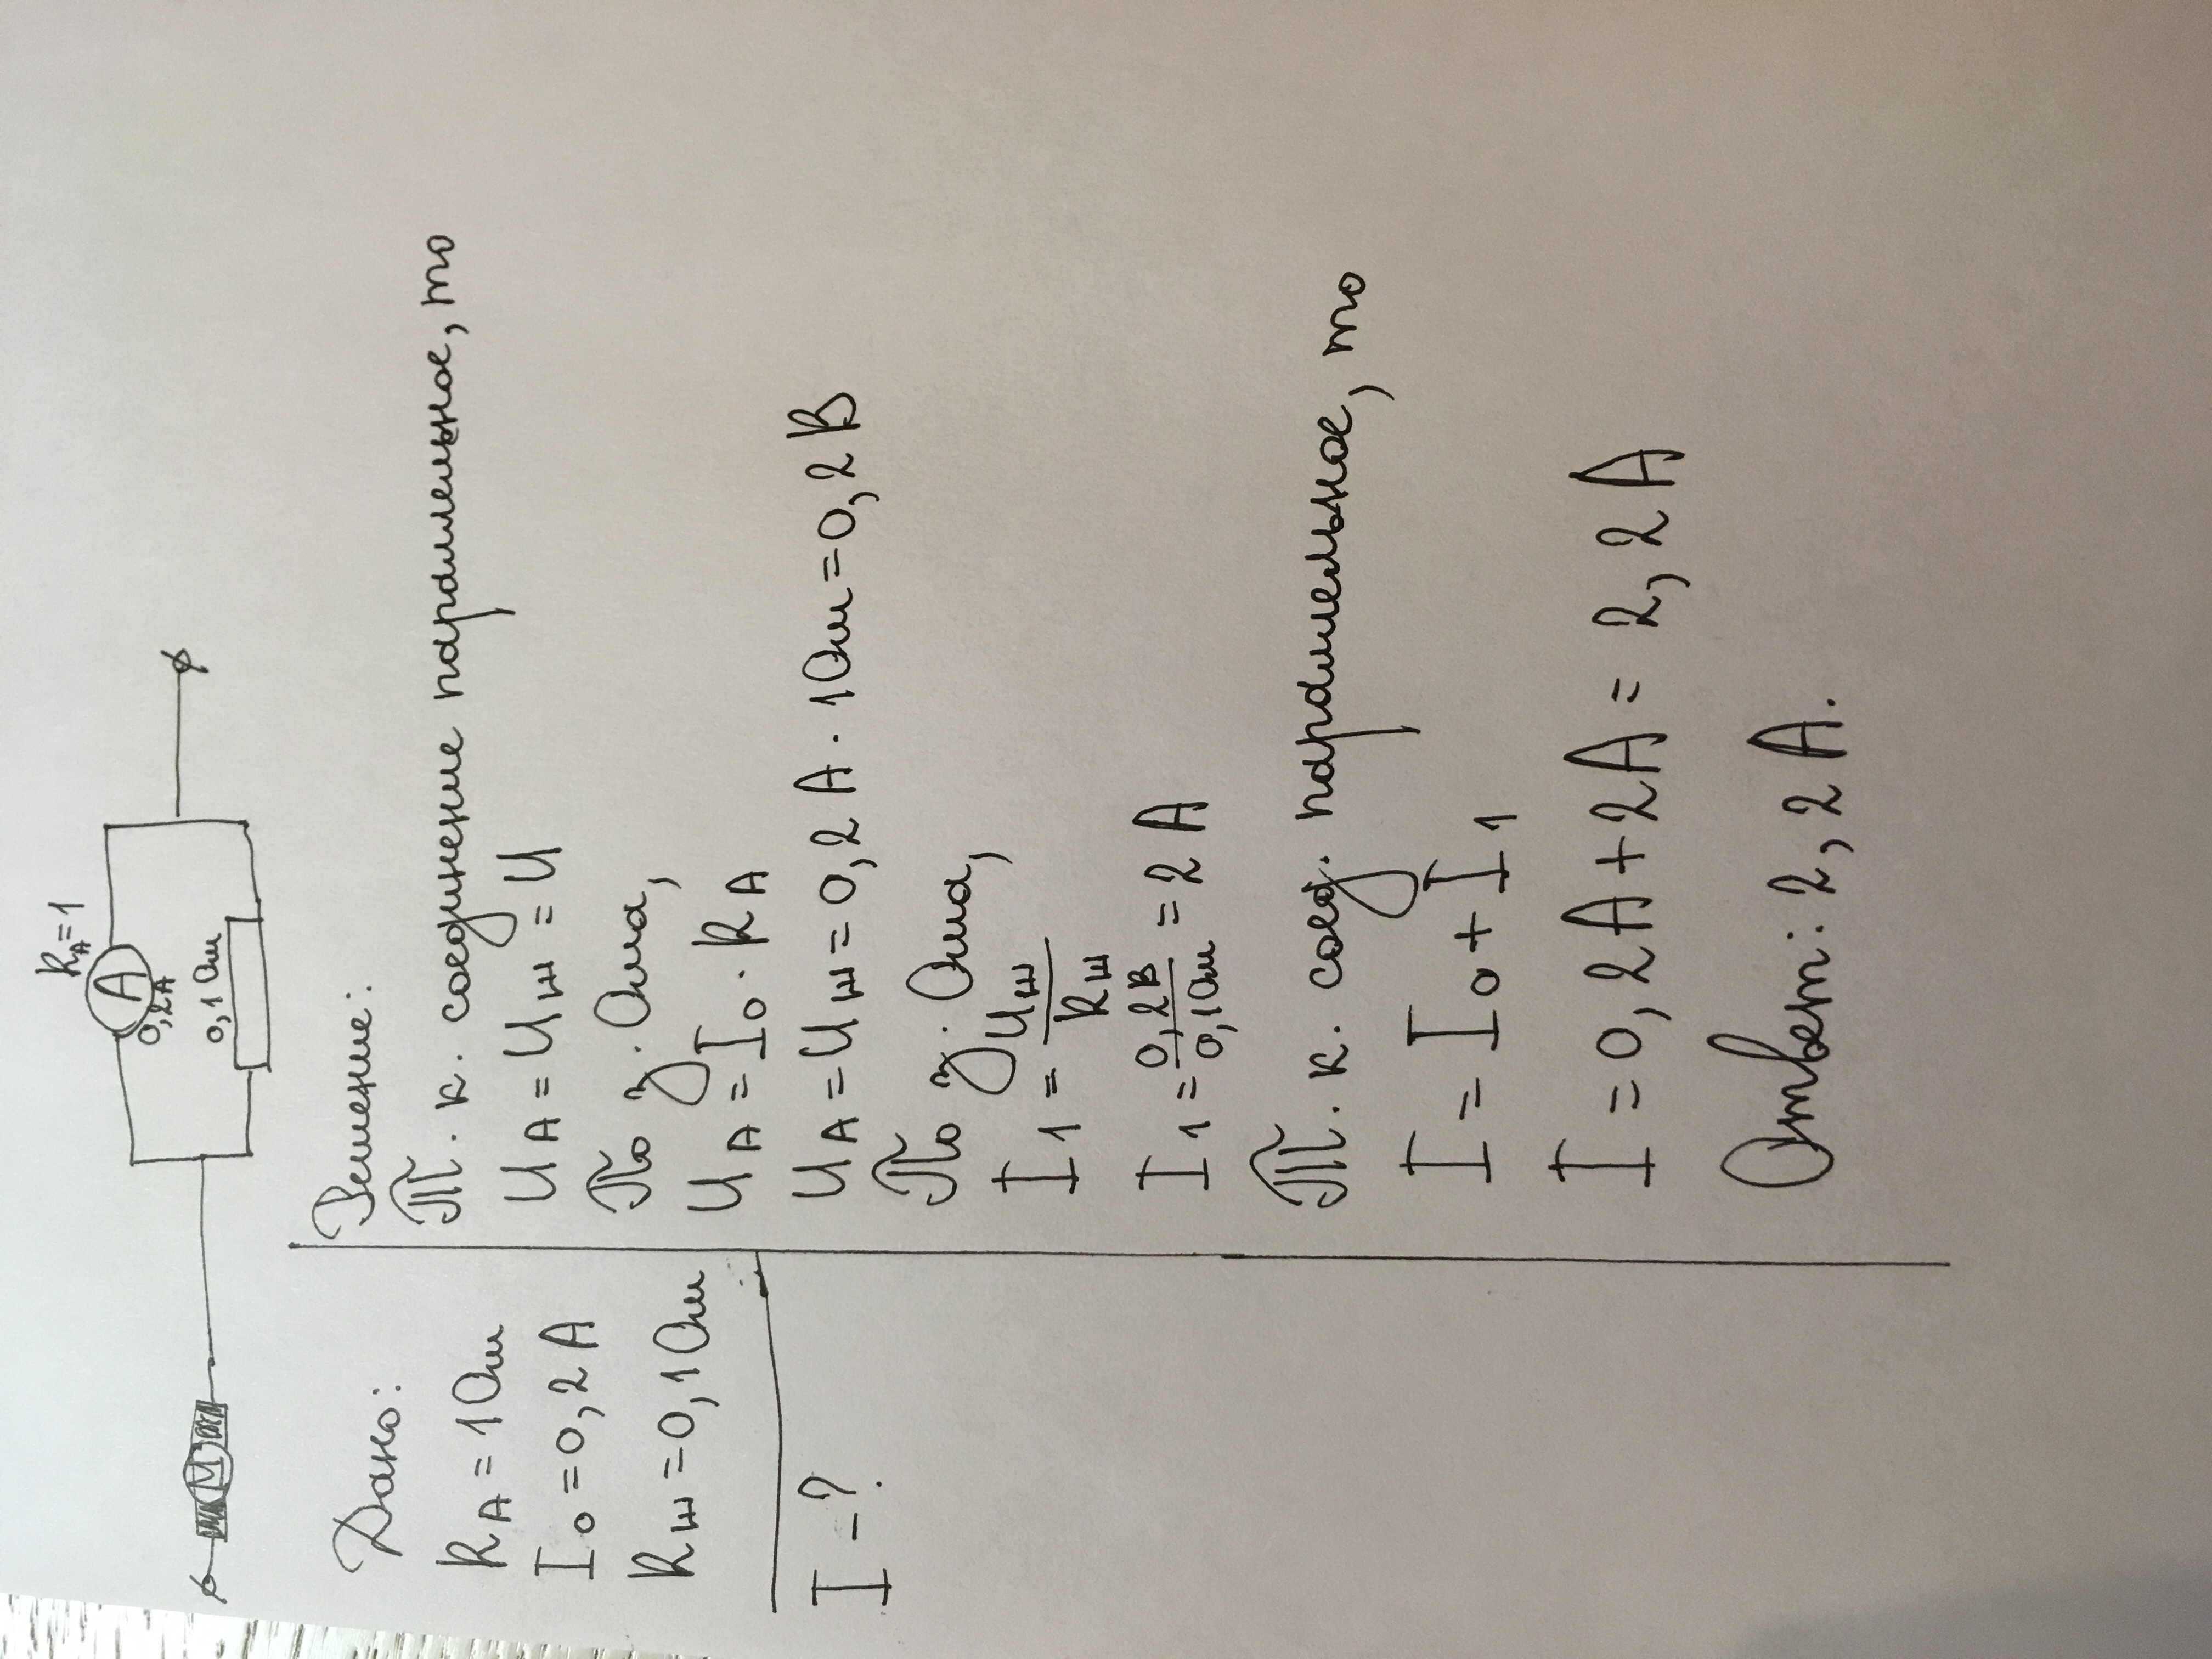 R_A=1
A
0,2A
0,1 Ом
M
Дано:
R_A = 1 Ом
I_0 = 0,2 А
R_ш = 0,1 Ом
I - ?
Решение:
Т. к. соединение параллельное, то
U_A = U_ш = U
По з. Ома,
U_A = I_0 · R_A
U_A = U_ш = 0,2 А · 1 Ом = 0,2 В
По з. Ома,
I_1 = U_ш / R_ш
I_1 = 0,2В / 0,1Ом = 2 А
Т. к. соед. параллельное, то
I = I_0 + I_1
I = 0,2 А + 2А = 2,2 А
Ответ: 2,2 А.